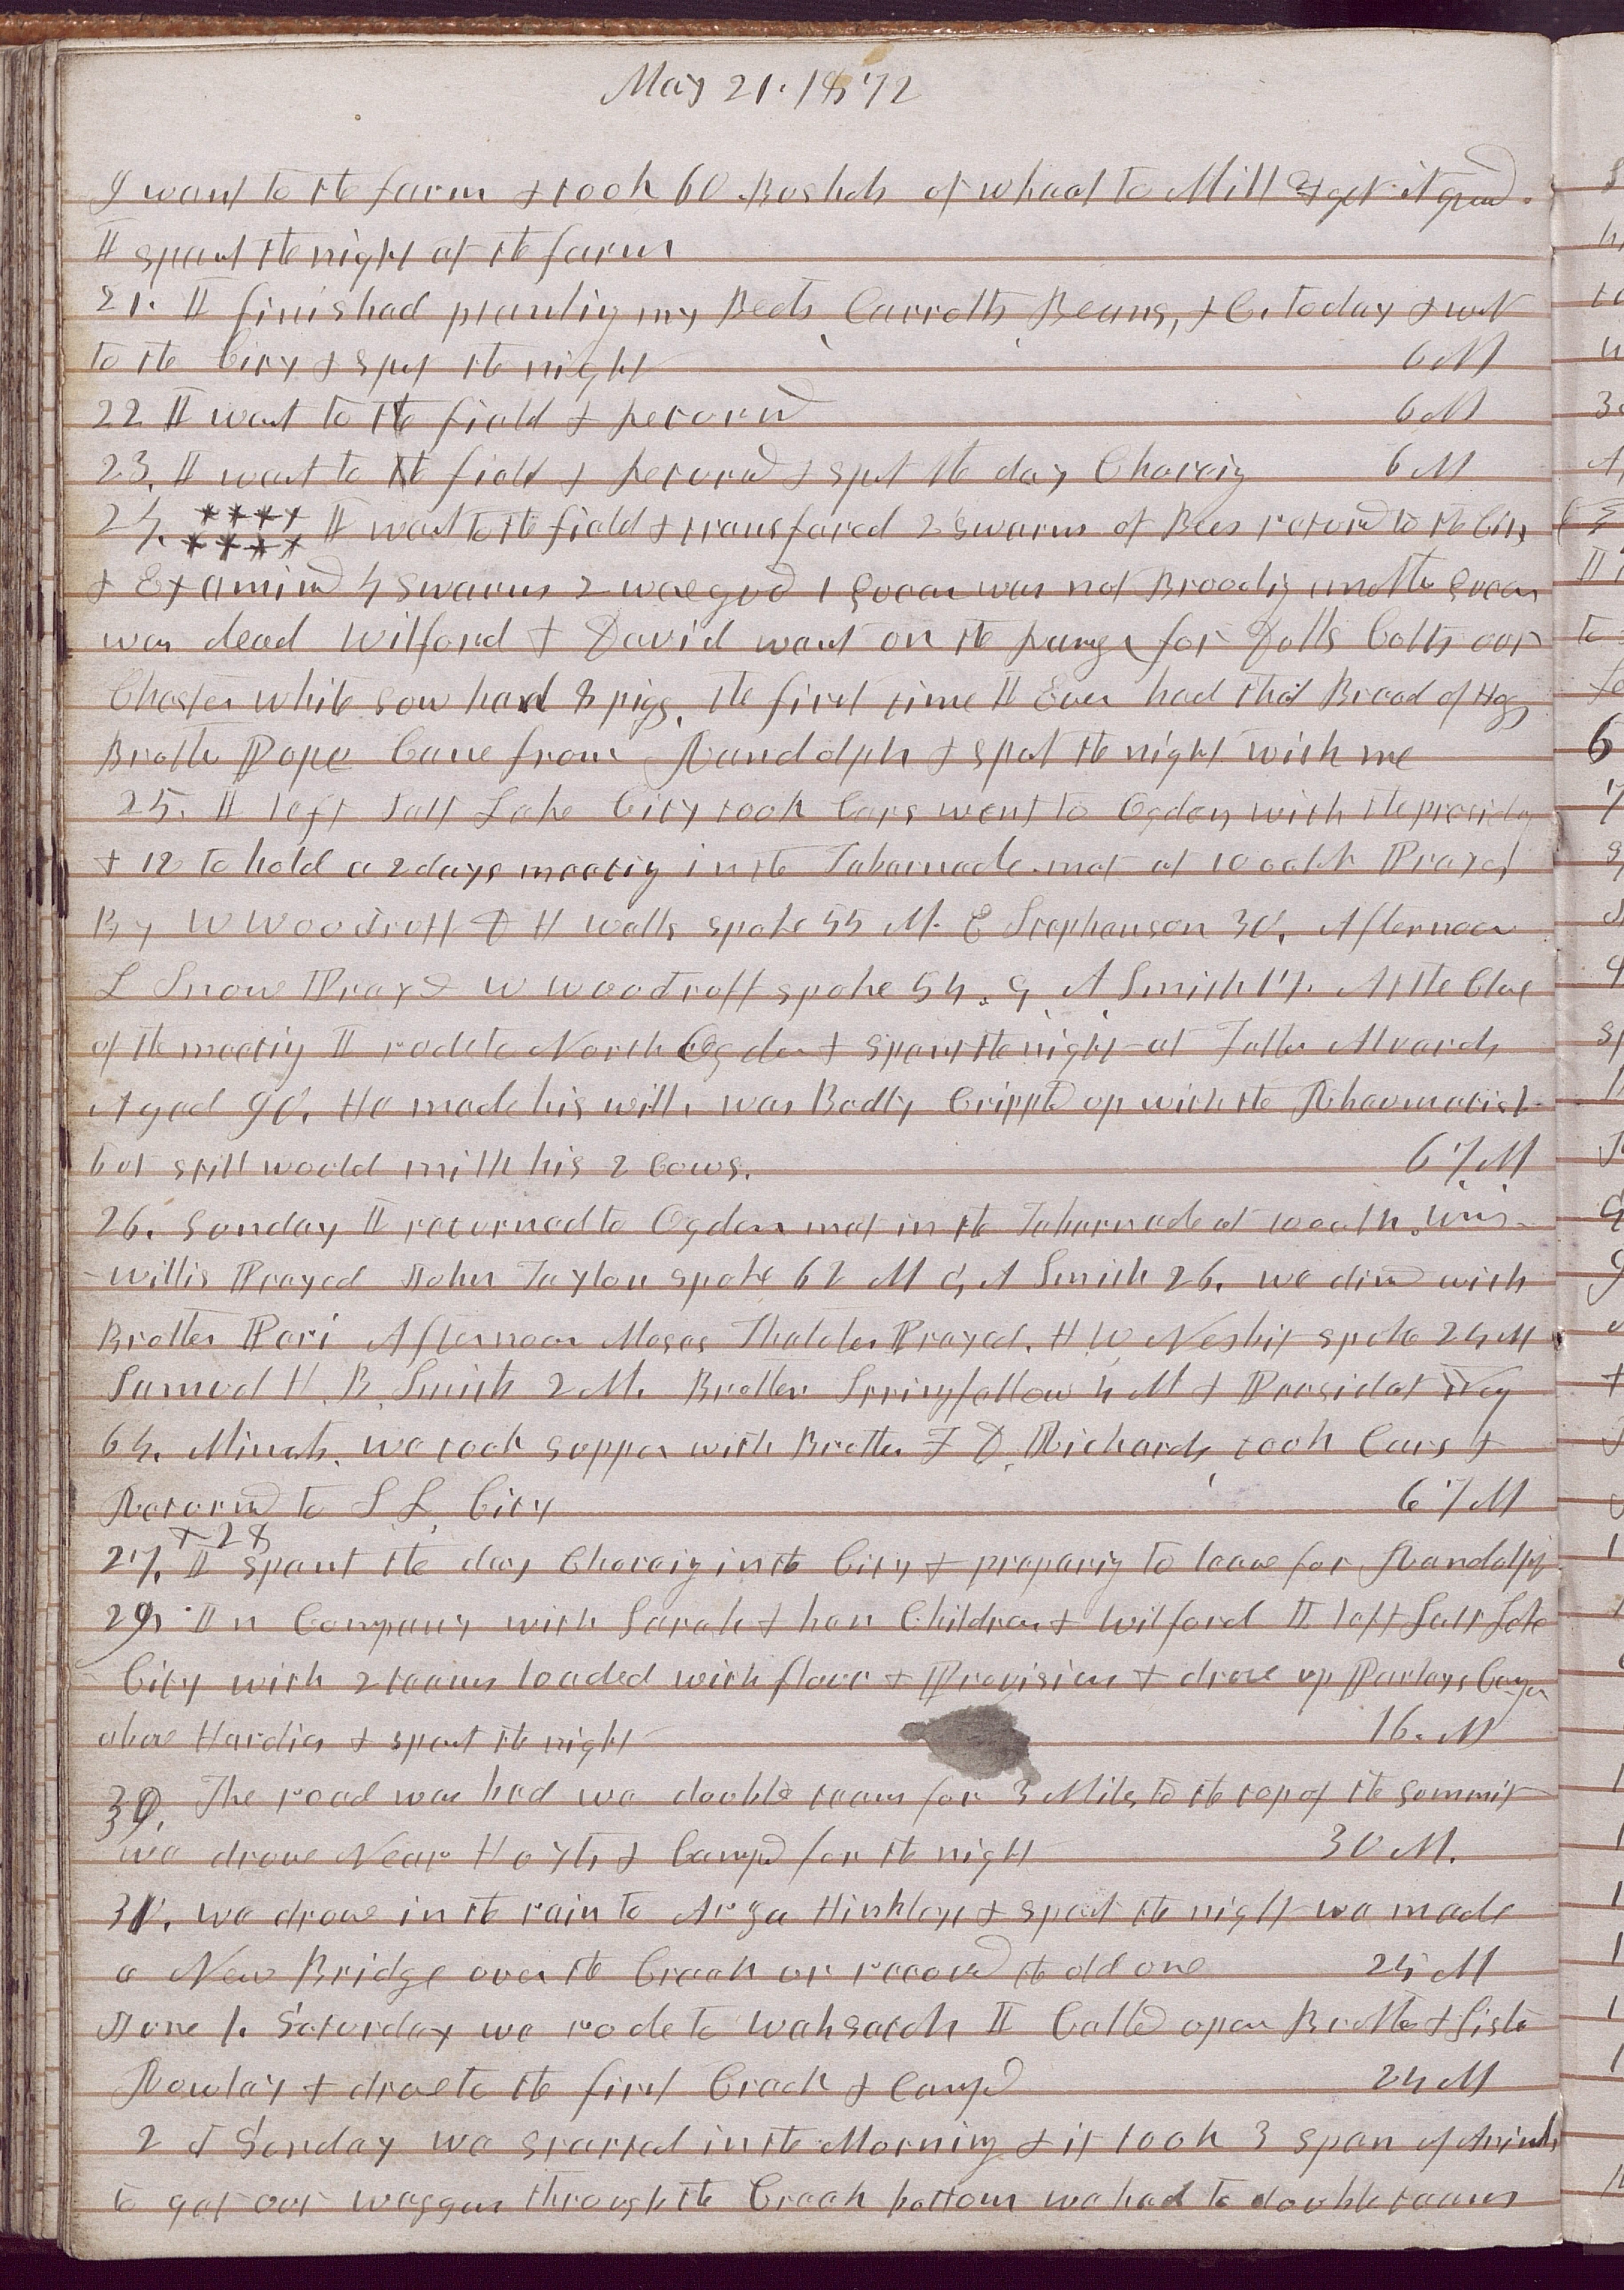 May 21. 1872
I went to the farm & took 60 Bushels of wheat to Mill & got it grind.
I spent the night at the farm
21. I finished planting my Beets Carrotts Beans, & C. today & went
to the City & spet the night 6 M
22 I went to the field & Returnd 6 M
23. I went to the field & Returnd & spet the day Choreing 6 M
24. **** **** I went to the field & transfered 2 swarms of Bees returnd to the City
& Examined 4 swarms 2 ware good 1 Queen was not Brooding another Queen
was dead Wilford & David went on the Range for Dolls Colts our
Chester white sow had 8 pigs, the first time I Ever had that Breed of Hogs
Brother Pope Came from Randolph & spent the night with me
25. I left Salt Lake City took Cars went to Ogden with the presidency
& 12 to hold a 2 days meeting in the Tabernacle. met at 10 oclok Prayer
By W Woodruff D H Wells spoke 55 M. E Stephenson 30. Afternoon
L Snow Prayed W Woodruff spoke 54. G A Smith 17. At the Close
of the meeting I rode to North Ogden & spent the night at Father Alvords
Aged 90. He made his will, was Badly Crippled up with the Rheumatist
but still would milk his 2 Cows. 67 M
26. Sunday I returned to Ogden met in the Tabernacle at 10 oclok.
Willis Prayed John Taylor spoke 62 M G, A Smith 26. we dined with
Brother Peri Afternoon Moses Thatcher Prayed. H W Nesbit spoke 24 M
Samuel H. B. Smith 2 M. Brother Stringfellow 4 M & Presidet Yog
64. Minuts. we took supper with Brother F D. Richards, took Cars &
Returnd to S L City 67 M
27. & 28 I spent the day Choreing in the City & preparing to leave for Randolph
29. In Company with Sarah & her Children & Wilford I left Salt Lake
City with 2 teams loaded with flour & Provision & drove up Parleys Canyon
above Hardies & spent the night 16. M
30. The road was bad we double team for 3 Miles to the top of the Summit
we drove Near Hoyts & Camped for the night 30 M.
31. we drove in the rain to Arza Hinkleys & spent the night we made
a New Bridge over the Creek or recoverd the old one 24 M
June 1. Saturday we rode to Wahsatch I Called upon Brother & Sister
Rowley & drove to the first Creek & Camped 24 M
2d Sunday we started in the Morning & it took 3 span of Animals
to get our waggon through the Creek bottom we had to double teams